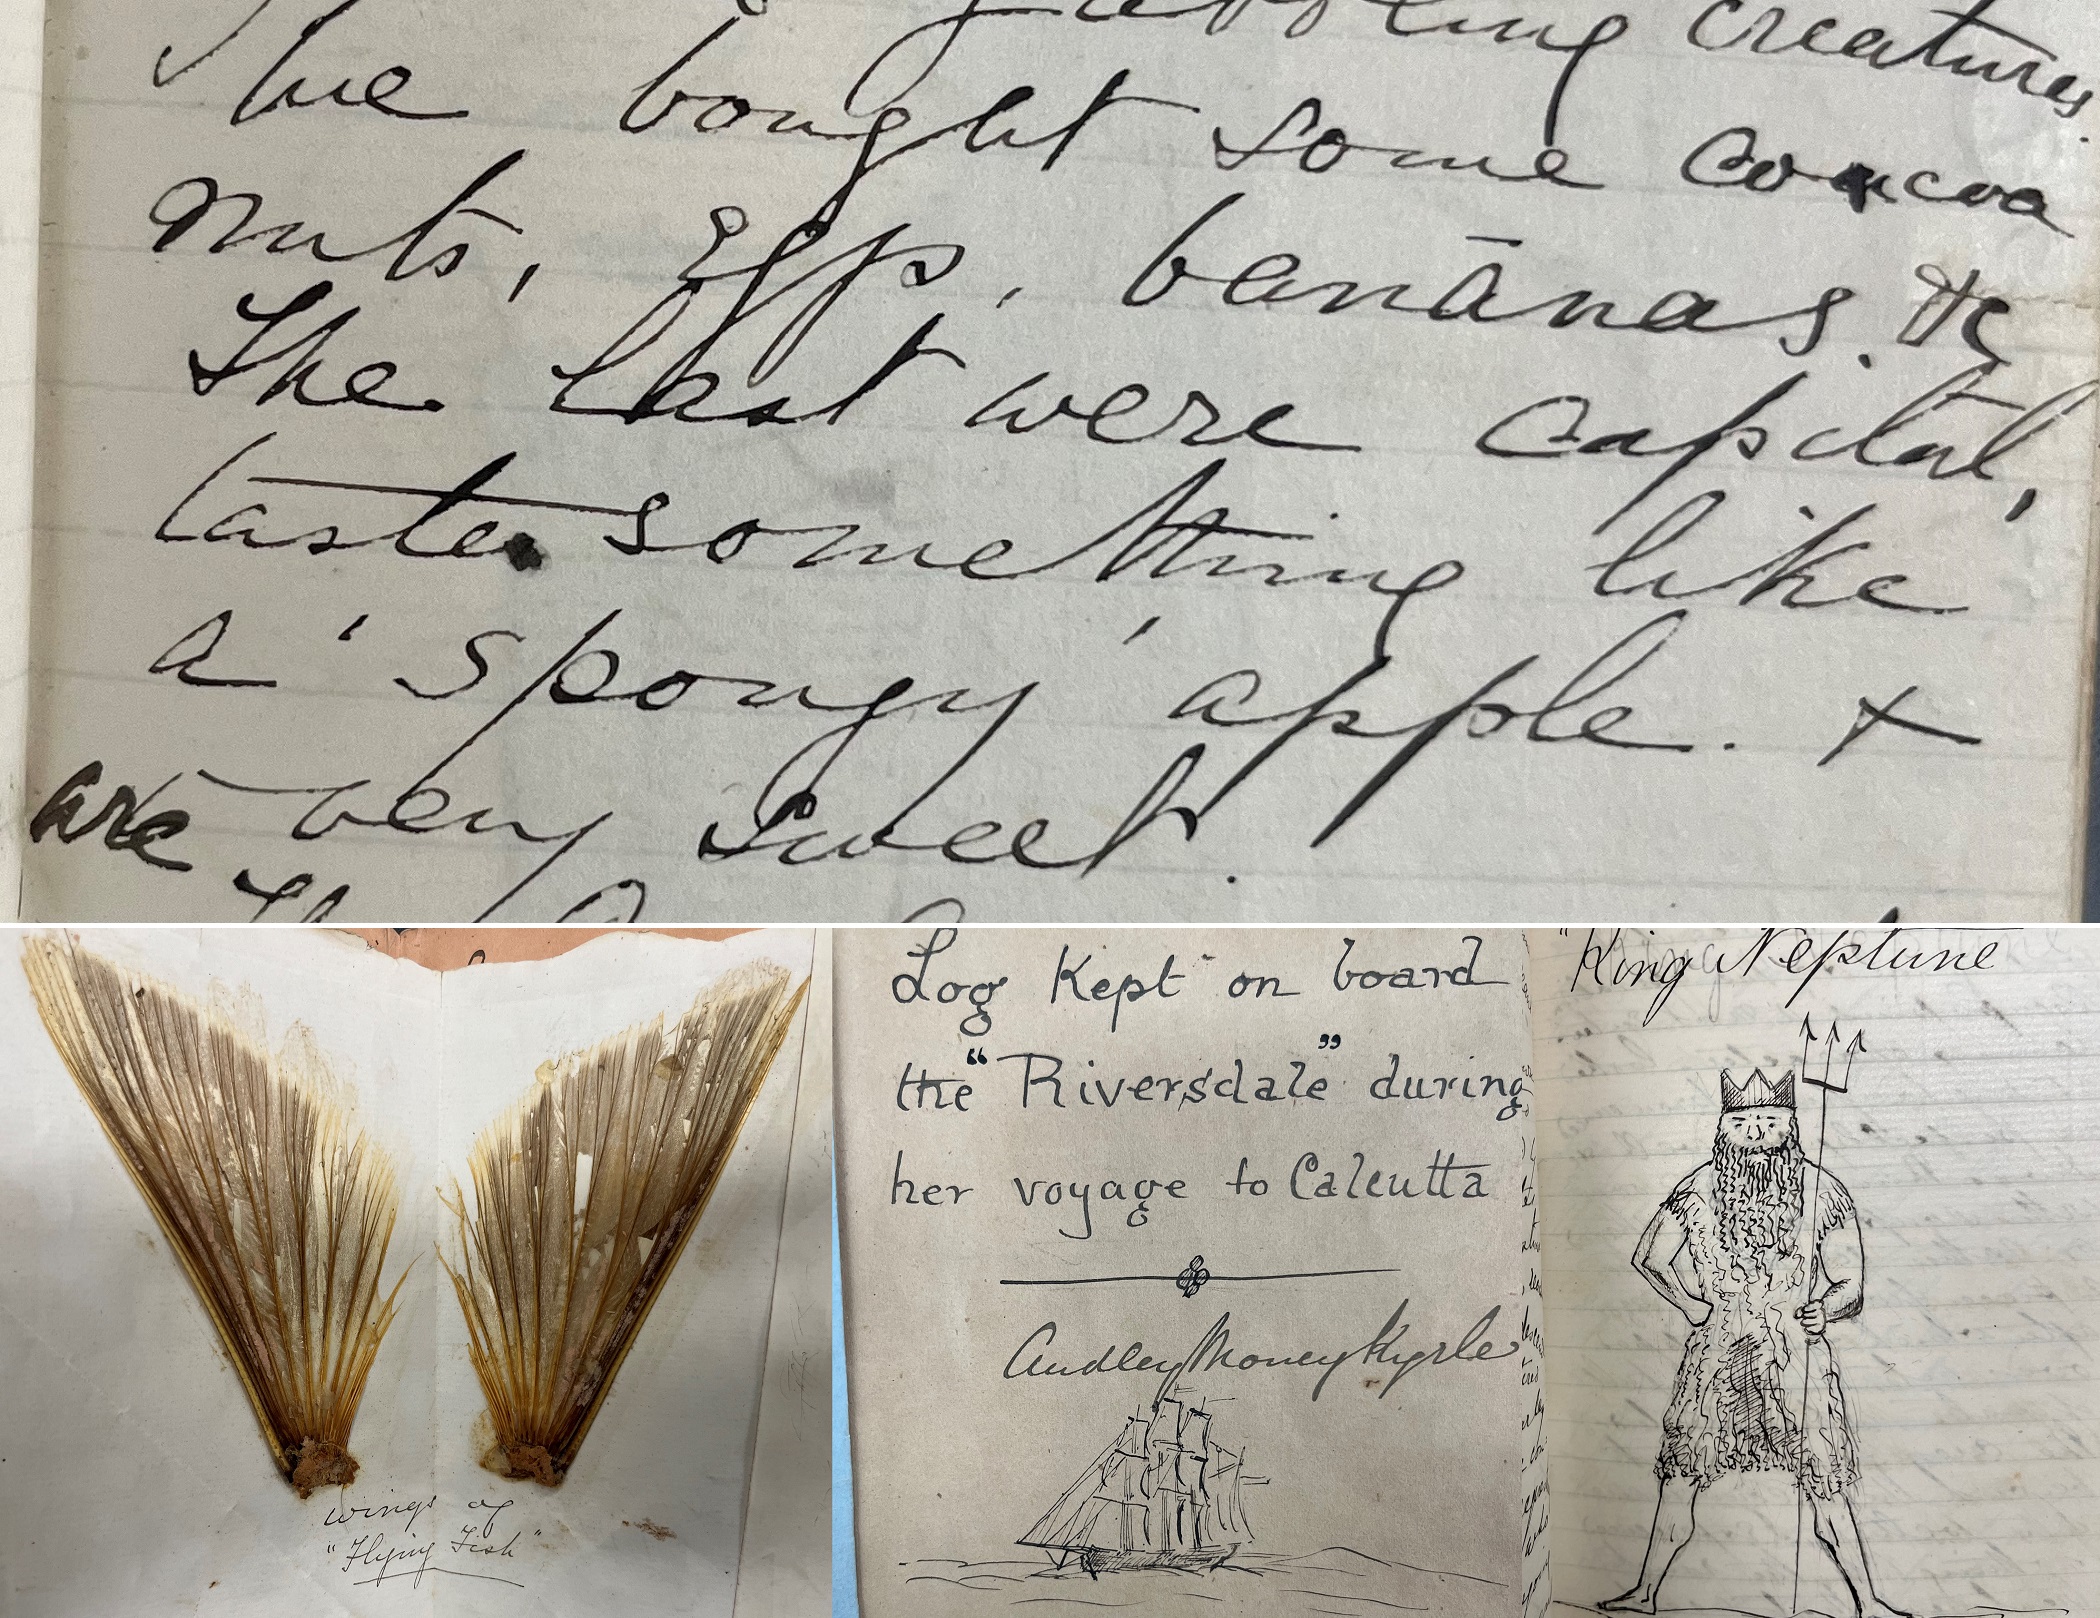 creatures.
We bought some cocoa
nuts, Eggs, banānas. &c
The last were capital,
taste something like
a 'spongy' apple. +
are very sweet.
wings of
"Flying Fish"
Log Kept on board
the "Riversdale" during
her voyage to Calcutta
Audley Money Kyrle
"King Neptune